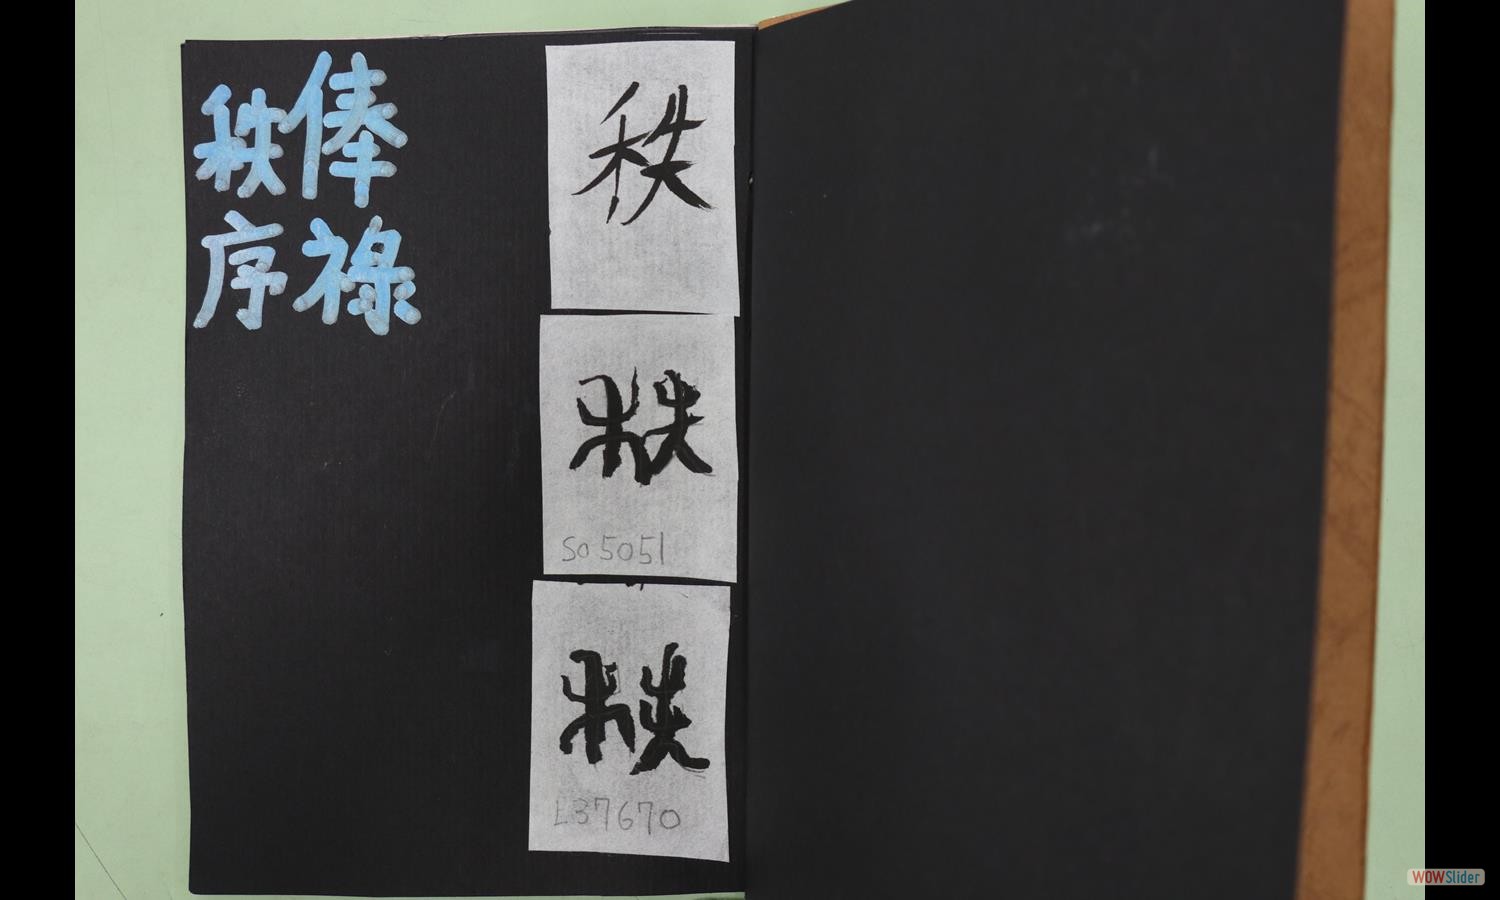 俸禄
秩序
秩
秩
S05051
秩
L37670
WOWSlider